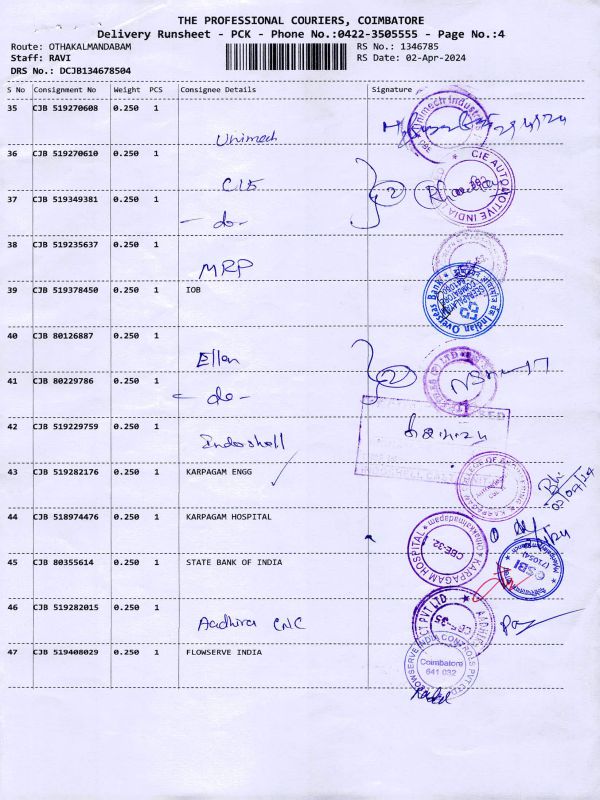 THE PROFESSIONAL COURIERS, COIMBATORE
Delivery Runsheet - PCK - Phone No.:0422-3505555 - Page No.:4
Route: OTHAKALMANDABAM
RS No.: 1346785
Staff: RAVI
RS Date: 02-Apr-2024
DRS No.: DCJB134678504
S No Consignment No Weight PCS Consignee Details Signature
35 CJB 519270608 0.250 1
Unimech
36 CJB 519270610 0.250 1
CIE
CIE AUTOMOTIVE INDIA
37 CJB 519349381 0.250 1
- do -
2
38 CJB 519235637 0.250 1
MRP
39 CJB 519378450 0.250 1 IOB
Indian Overseas Bank
40 CJB 80126887 0.250 1
Ellen
41 CJB 80229786 0.250 1
- do -
2
42 CJB 519229759 0.250 1
Indoshell
43 CJB 519282176 0.250 1 KARPAGAM ENGG
44 CJB 518974476 0.250 1 KARPAGAM HOSPITAL
KARPAGAM HOSPITAL
Othakalmandapam
CBE-32
45 CJB 80355614 0.250 1 STATE BANK OF INDIA
SBI
46 CJB 519282015 0.250 1
Aadhira CNC
47 CJB 519408029 0.250 1 FLOWSERVE INDIA
FLOWSERVE INDIA CONTROLS PVT LTD
Coimbatore
641 032